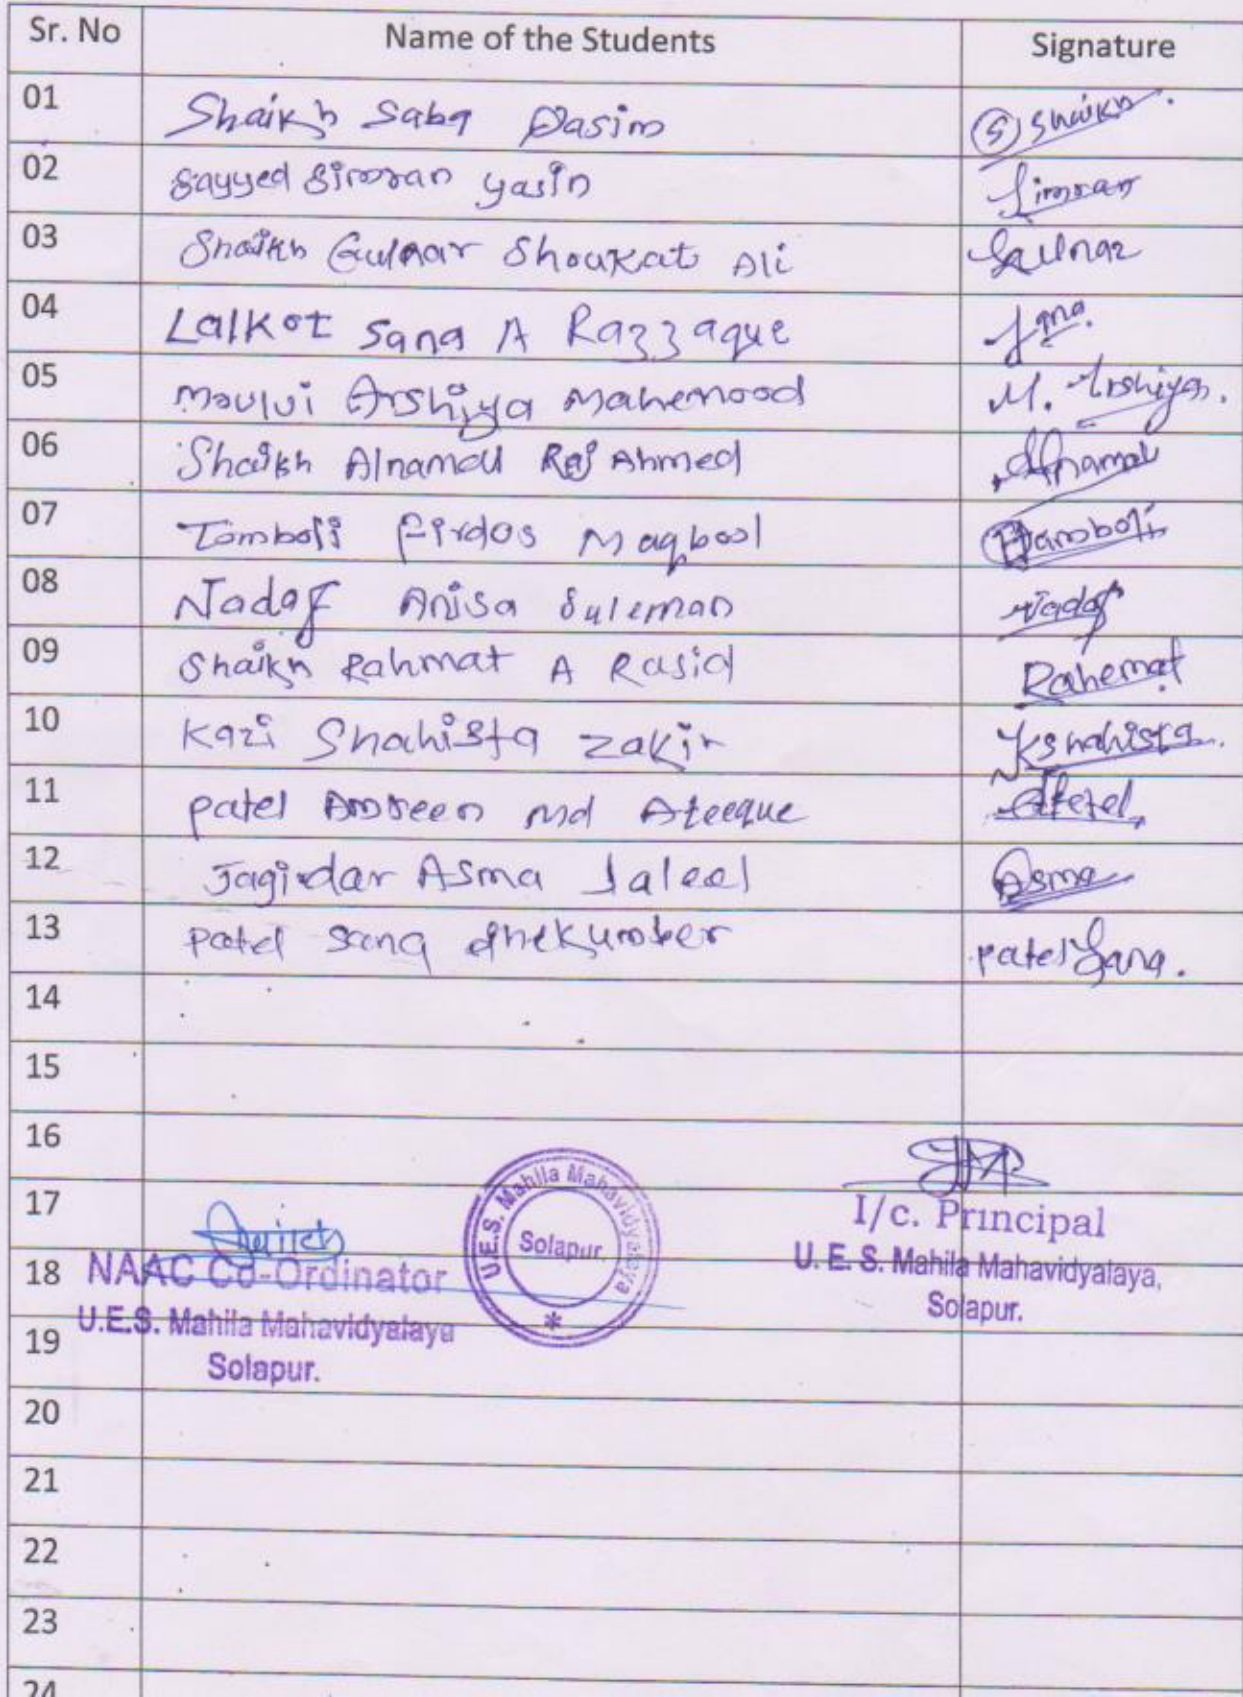 Sr. No Name of the Students Signature
01 Shaikh Saba Qasim S Shaikh.
02 Sayyed Simran Yasin Simran
03 Shaikh Gulnar Shoukat Ali Gulnaz
04 Lalkot Sana A Razzaque Sana.
05 Moulvi Arshiya Mahemood M. Arshiya.
06 Shaikh Alnamal Raj Ahmed Alnamal
07 Tamboli Firdos Maqbool Tamboli
08 Nadaf Anisa Suleman Nadaf
09 Shaikh Rahmat A Rasid Rahemat
10 Kazi Shahista Zakir Kshahista.
11 Patel Amreen Md Ateeque
12 Jagirdar Asma Jaleel Asma
13 Patel Sana Patel Sana.
14
15
16
17
18
19
20
21
22
23
24
I/c. Principal
U. E. S. Mahila Mahavidyalaya,
Solapur.
U.E.S. Mahila Mahavidyalaya
Solapur.
*
NAAC Co-Ordinator
U.E.S. Mahila Mahavidyalaya
Solapur.